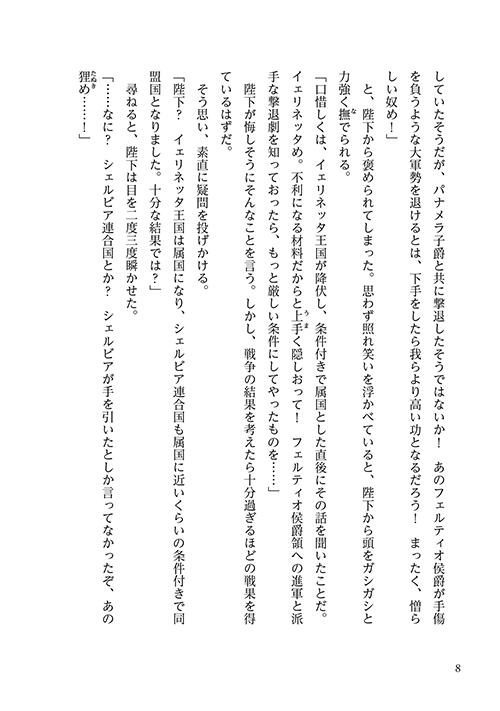 していたそうだが、パナメラ子爵と共に撃退したそうではないか！　あのフェルティオ侯爵が手傷
を負うような大軍勢を退けるとは、下手をしたら我らより高い功となるだろう！　まったく、憎ら
しい奴め！」
　と、陛下から褒められてしまった。思わず照れ笑いを浮かべていると、陛下から頭をガシガシと
力強く撫でられる。
「口惜しくは、イェリネッタ王国が降伏し、条件付きで属国とした直後にその話を聞いたことだ。
イェリネッタめ。不利になる材料だからと上手く隠しおって！　フェルティオ侯爵領への進軍と派
手な撃退劇を知っておったら、もっと厳しい条件にしてやったものを……」
　陛下が悔しそうにそんなことを言う。しかし、戦争の結果を考えたら十分過ぎるほどの戦果を得
ているはずだ。
　そう思い、素直に疑問を投げかける。
「陛下？　イェリネッタ王国は属国になり、シェルビア連合国も属国に近いくらいの条件付きで同
盟国となりました。十分な結果では？」
　尋ねると、陛下は目を二度三度瞬かせた。
「……なに？　シェルビア連合国とか？　シェルビアが手を引いたとしか言ってなかったぞ、あの
狸め……！」
な
うま
たぬき
8